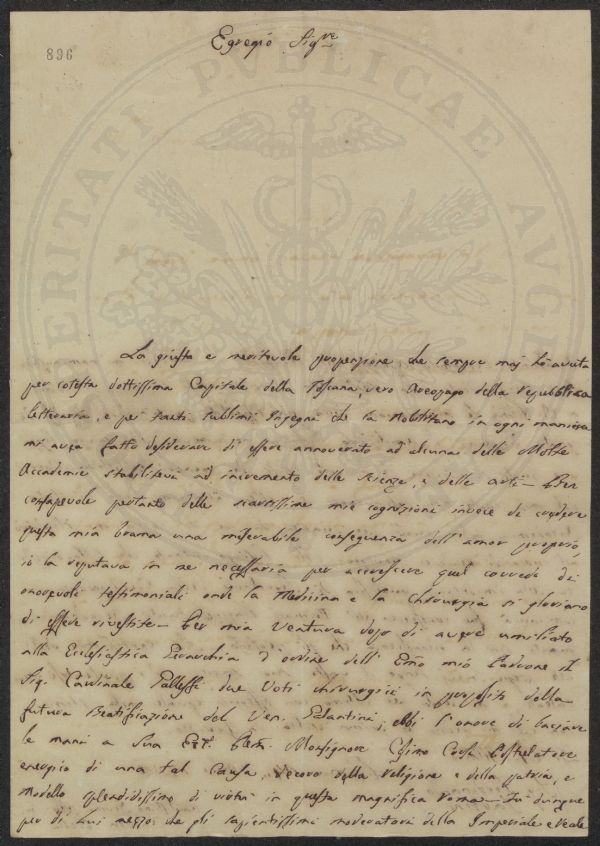 896
Egregio Sig.re
La giusta e meritevole propenzione, che sempre mai hò avuta
per cotesta dottissima Capitale della Toscana, vero Areopago della Repubblica
letteraria, e per tanti sublimi Ingegni che la Nobilitano in ogni maniera
mi avea fatto desiderare di essere annoverato ad alcuna delle Molte
Accademie stabilitevi ad incremento delle Scienze, e delle arti – Ben
consapevole pertanto delle scarsissime mie cognizioni invece di credere
questa mia brama una miserabile conseguenza dell'amor proprio,
io la reputava in me necessaria per accrescere quel corredo di
onorevoli testimoniali onde la Medicina e la Chirurgia si gloriano
di essere rivestite – Per mia Ventura dopo di avere umiliato
alla Ecclesiastica Gerarchia d'ordine dell' Emo mio Padrone il
Sig. Cardinale due Voti chirurgici in proposito della
futura Beatificazione del Ven. ebbi l'onore di baciare
le mani a Sua Monsignore Cosimo Corsi Postulatore
eneopio di una tal Causa, decoro della religione e della patria, e
Modello splendidissimo di virtù in questa magnifica Roma – Fù dunque
per di Lui mezzo che gli sapientissimi moderatori della Imperiale e Reale
VERITATI PUBLICAE AUGE